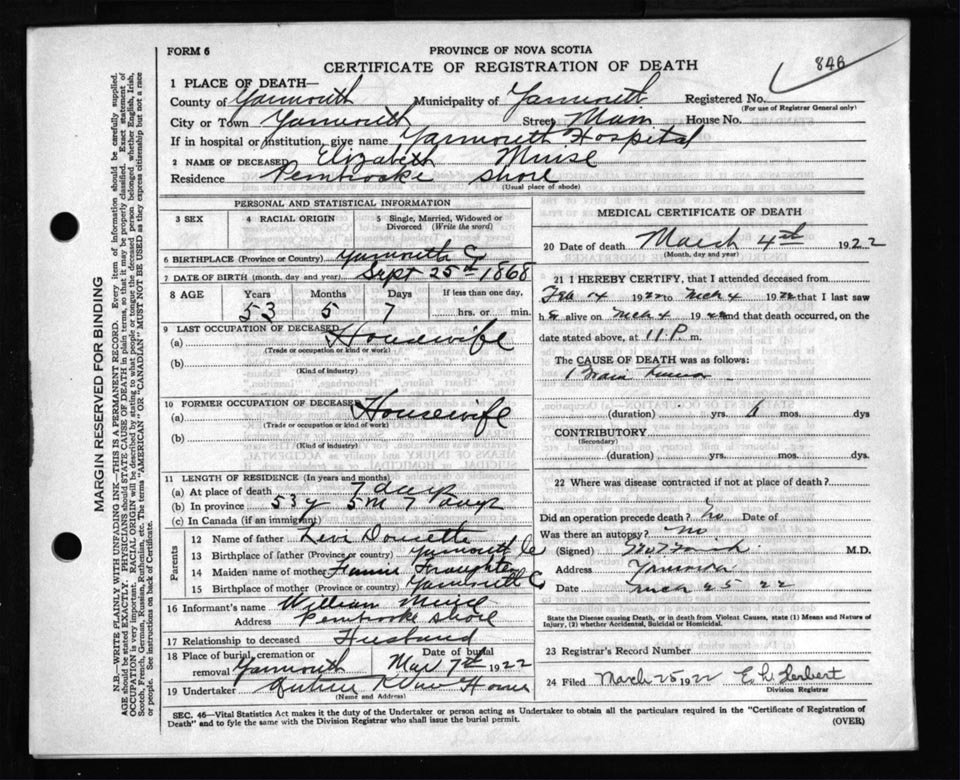 FORM 6
PROVINCE OF NOVA SCOTIA
CERTIFICATE OF REGISTRATION OF DEATH
846
1 PLACE OF DEATH—
County of Yarmouth Municipality of Yarmouth Registered No.
(For use of Registrar General only)
City or Town Yarmouth Street Main House No.
If in hospital or institution, give name Yarmouth Hospital
2 NAME OF DECEASED Elizabeth Muise
Residence Pembroake Shore
(Usual place of abode)
PERSONAL AND STATISTICAL INFORMATION
3 SEX
4 RACIAL ORIGIN
5 Single, Married, Widowed or Divorced (Write the word)
6 BIRTHPLACE (Province or Country) Yarmouth Co
7 DATE OF BIRTH (month, day and year) Sept 25th 1868
8 AGE Years Months Days If less than one day,
53 5 7 hrs. or min.
9 LAST OCCUPATION OF DECEASED
(a) Housewife
(Trade or occupation or kind or work)
(b)
(Kind of industry)
10 FORMER OCCUPATION OF DECEASED
(a) Housewife
(Trade or occupation or kind of work)
(b)
(Kind of industry)
11 LENGTH OF RESIDENCE (In years and months)
(a) At place of death 7 days
(b) In province 53 y 5 M 7 days
(c) In Canada (if an immigrant)
Parents
12 Name of father Levi Doucette
13 Birthplace of father (Province or country) Yarmouth Co
14 Maiden name of mother Fannie
15 Birthplace of mother (Province or country) Yarmouth Co
16 Informant's name William Muise
Address Pembrooke Shore
17 Relationship to deceased Husband
18 Place of burial, cremation or removal Yarmouth
Date of burial Mar 7th 1922
19 Undertaker
(Name and Address)
MEDICAL CERTIFICATE OF DEATH
20 Date of death March 4th 1922
(Month, day and year)
21 I HEREBY CERTIFY, that I attended deceased from
Feb 14 1922 to Mch 4 1922 that I last saw
h alive on Mch 4 1922 and that death occurred, on
date stated above, at 11 P. m.
The CAUSE OF DEATH was as follows:
Brain tumor
(duration) yrs. 6 mos. dys
CONTRIBUTORY
(Secondary)
(duration) yrs. mos. dys.
22 Where was disease contracted if not at place of death?
Did an operation precede death? No Date of
Was there an autopsy? No
(Signed) M.D.
Address Yarmouth
Date Mch 25 22
State the Disease causing Death, or in death from Violent Causes, state (1) Means and Nature of Injury, (2) whether Accidental, Suicidal or Homicidal.
23 Registrar's Record Number
24 Filed March 25 1922 Herbert
Division Registrar
SEC. 46—Vital Statistics Act makes it the duty of the Undertaker or person acting as Undertaker to obtain all the particulars required in the "Certificate of Registration of
Death" and to fyle the same with the Division Registrar who shall issue the burial permit.
(OVER)
MARGIN RESERVED FOR BINDING
N.B.—WRITE PLAINLY WITH UNFADING INK—THIS IS A PERMANENT RECORD. Every item of information should be carefully supplied.
AGE should be stated EXACTLY. PHYSICIANS should STATE CAUSE OF DEATH in plain terms, so that it may be properly classified. Exact statement of
OCCUPATION is very important. RACIAL ORIGIN will be described by stating to what people or tongue the deceased person belonged whether English, Irish,
Scotch, French, German, Russian, Ruthenian, etc. The terms "AMERICAN" OR "CANADIAN" MUST NOT BE USED as they express citizenship but not a race
or people. See instructions on back of Certificate.